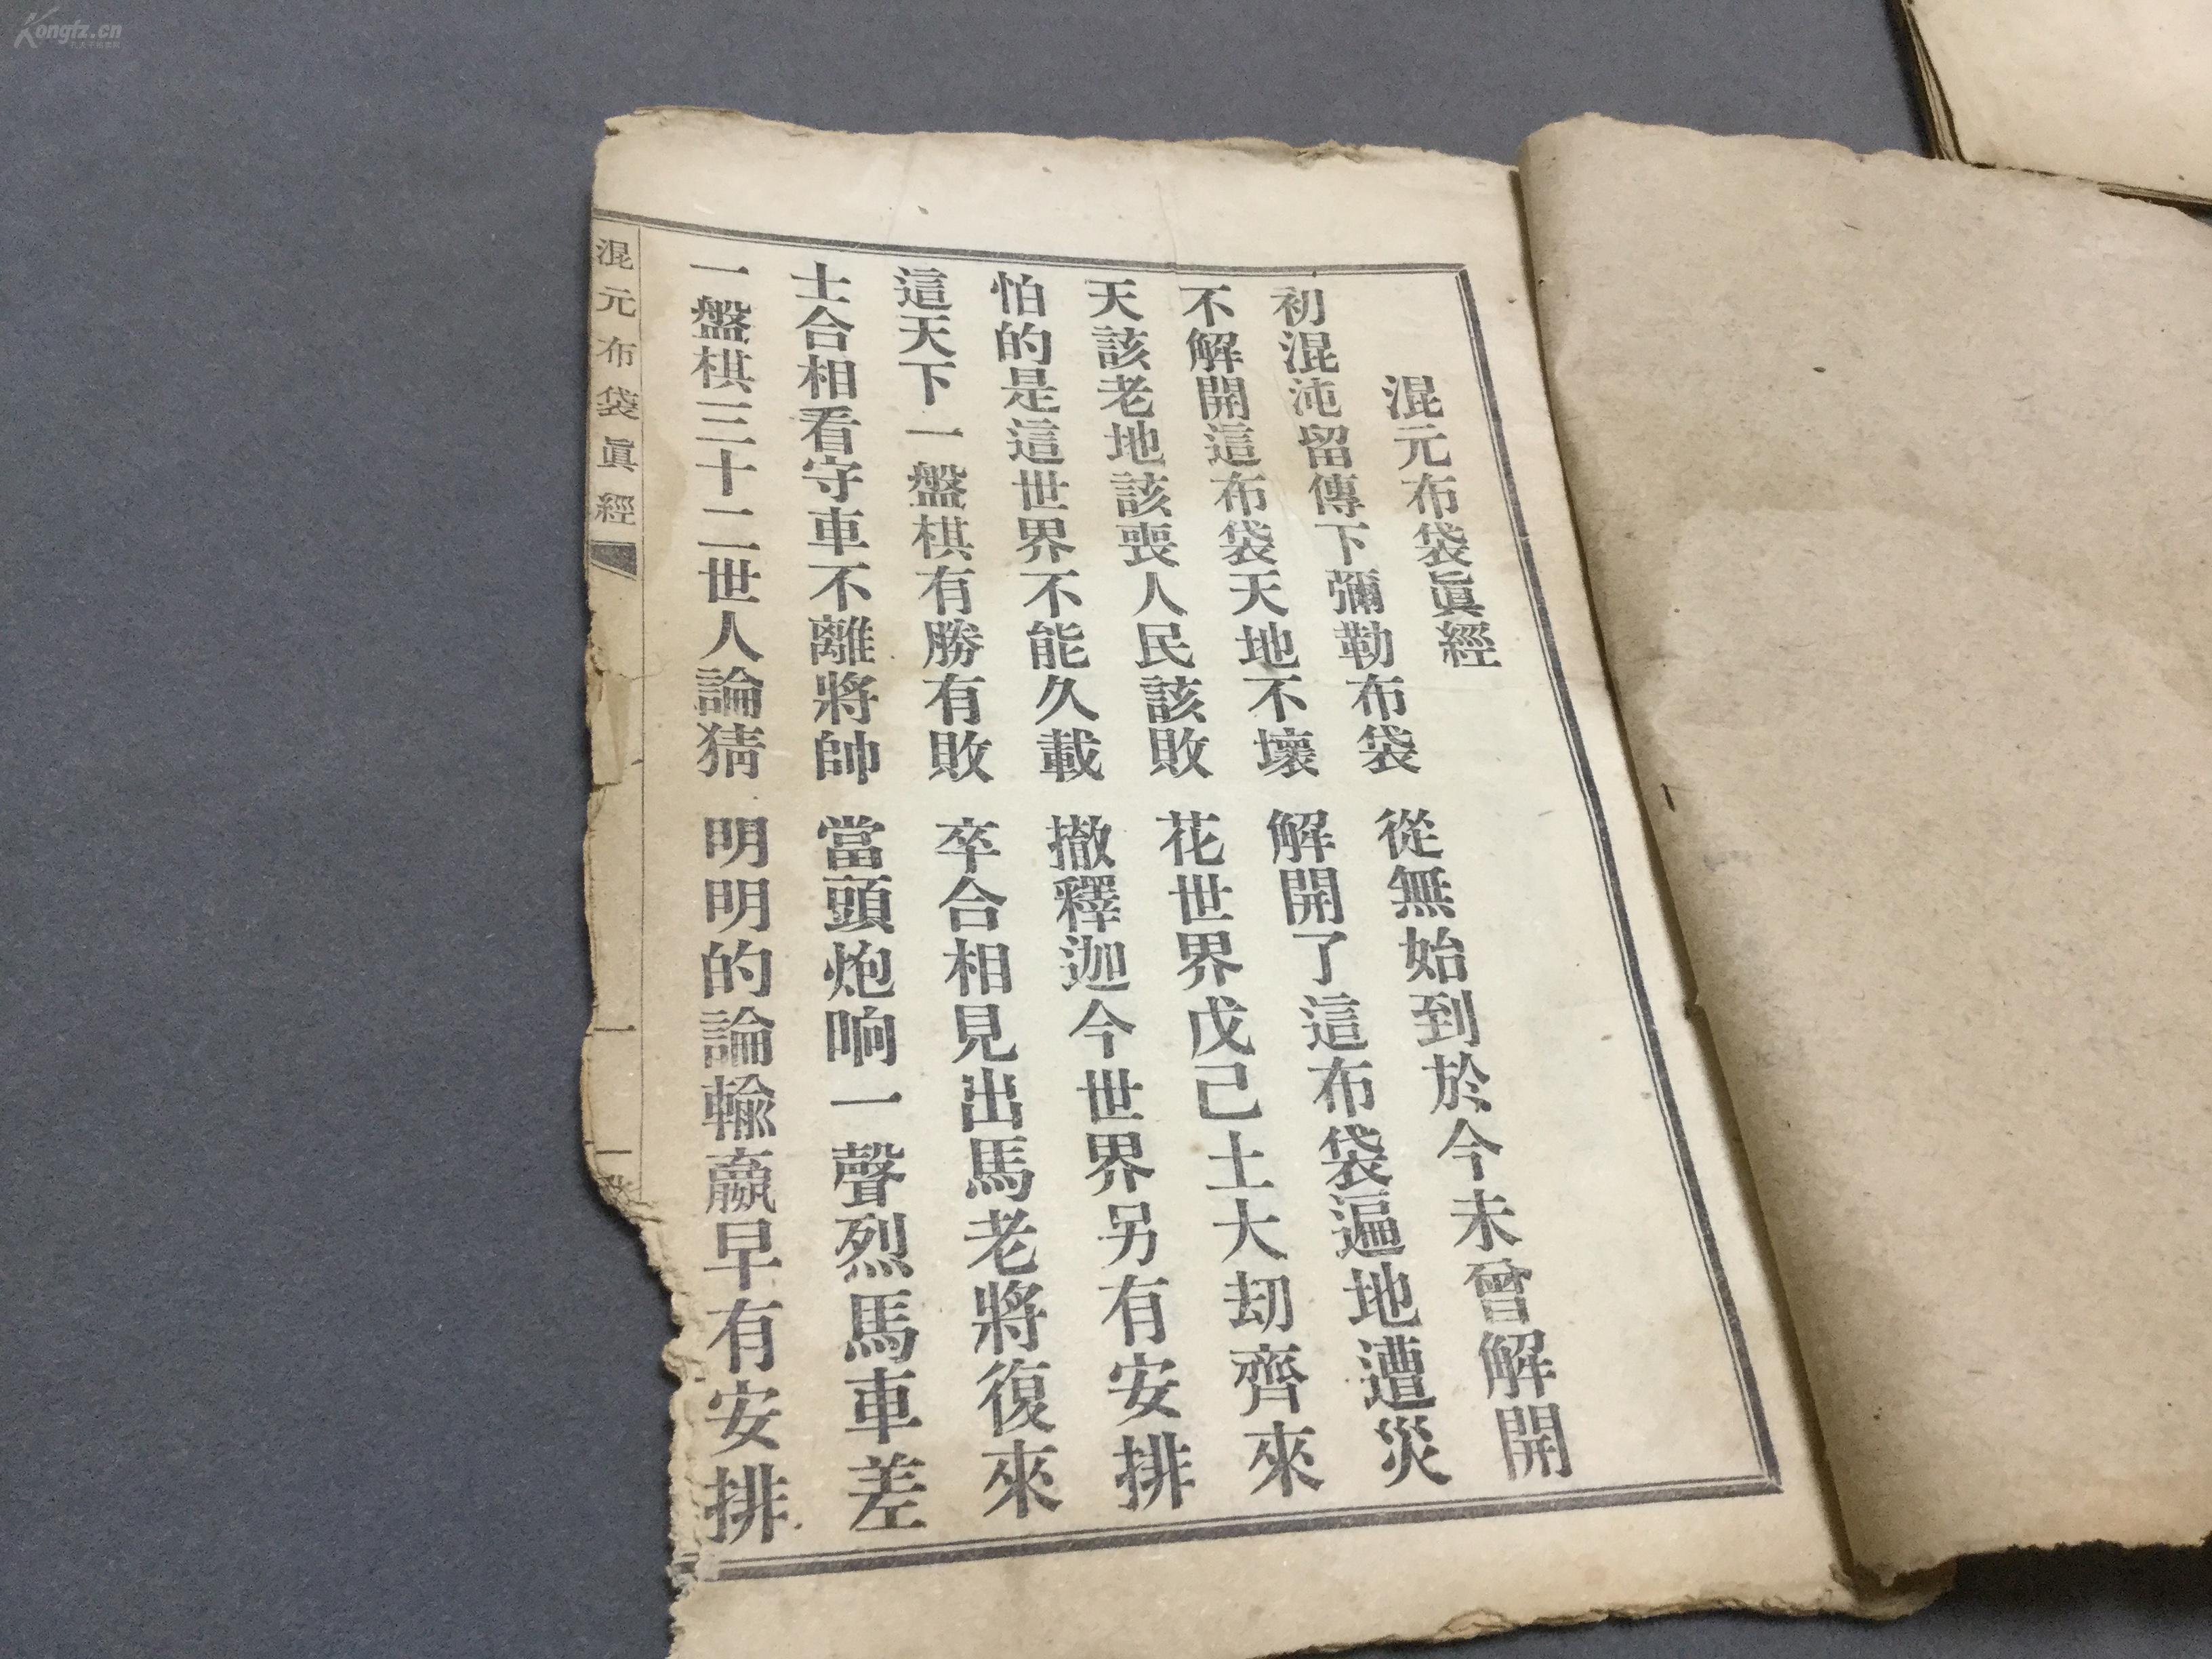 Kongfz.cn
混元布袋眞經
初混沌留傳下彌勒布袋 從無始到於今未曾解開
不解開這布袋天地不壞 解開了這布袋遍地遭災
天該老地該喪人民該敗 花世界戊己土大刧齊來
怕的是這世界不能久載 撤釋迦今世界另有安排
這天下一盤棋有勝有敗 卒合相見出馬老將復來
士合相看守車不離將帥 當頭炮响一聲烈馬車差
一盤棋三十二世人論猜 明明的論輸贏早有安排
混元布袋眞經 一